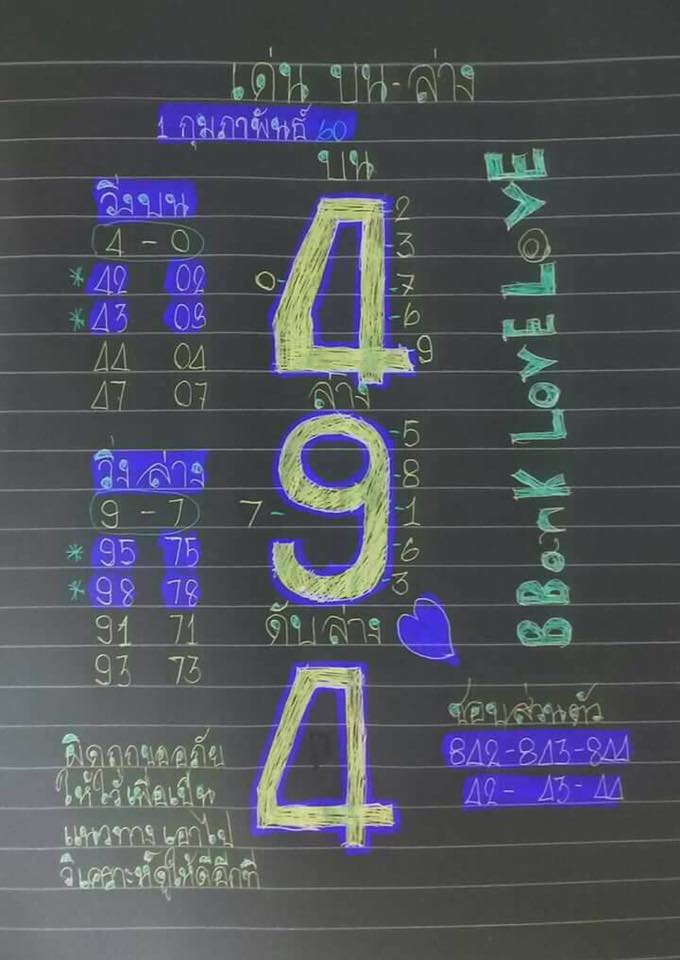 เด่น บน-ล่าง
1 กุมภาพันธ์ 60
บน
วิ่งบน
4 - 0
*42 02
*43 03
44 04
47 07
4
0-
-2
-3
-7
-6
-9
ล่าง
วิ่งล่าง
9 - 7
*95 75
*98 78
91 71
93 73
9
7-
-5
-8
-1
-6
-3
ดับล่าง
4
BBank LoVE LoVE
ชอบส่วนตัว
842-843-844
42- 43- 44
ผิดถูกขออภัย
ให้ไว้เพื่อเป็น
แนวทางเอาไป
วิเคราะห์ดูให้ดีอีกที